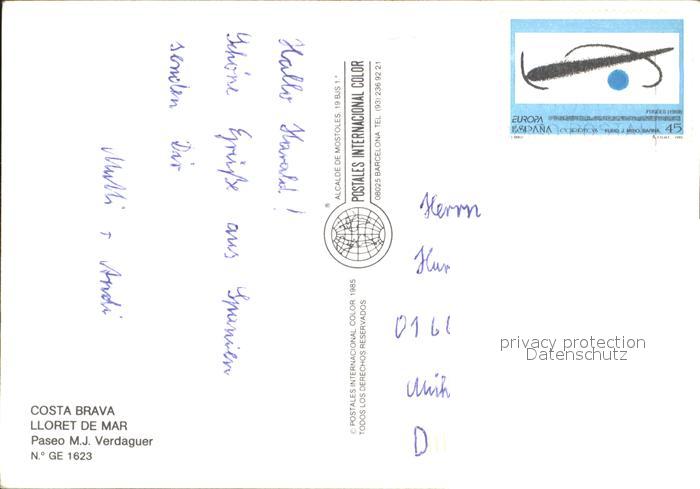 Hallo Harald!
Schöne Grüße aus Spanien
senden Dir
Mutti + Andi
® ALCALDE DE MOSTOLES, 19 BJS 1.ª
POSTALES INTERNACIONAL COLOR
08025 BARCELONA TEL. (93) 236 92 21
© POSTALES INTERNACIONAL COLOR 1985
TODOS LOS DERECHOS RESERVADOS
EUROPA
ESPAÑA
45
Herrn
D
privacy protection
Datenschutz
COSTA BRAVA
LLORET DE MAR
Paseo M.J. Verdaguer
N.º GE 1623